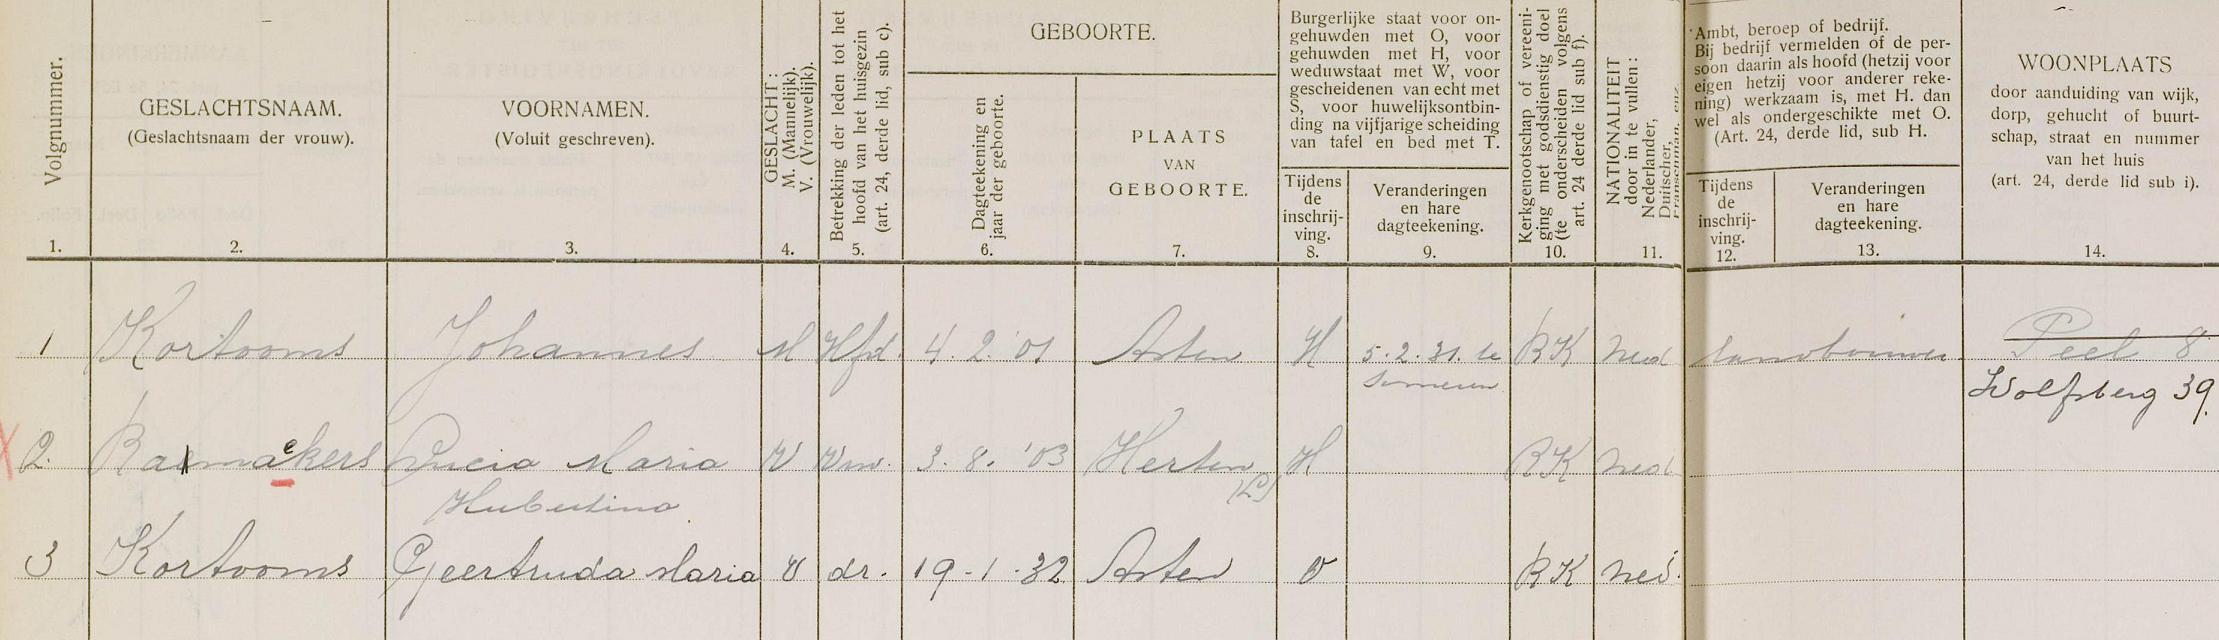 Volgnummer.
1.
GESLACHTSNAAM.
(Geslachtsnaam der vrouw).
2.
VOORNAMEN.
(Voluit geschreven).
3.
GESLACHT:
M. (Mannelijk).
V. (Vrouwelijk).
4.
Betrekking der leden tot het
hoofd van het huisgezin
(art. 24, derde lid, sub c).
5.
GEBOORTE.
Dagteekening en
jaar der geboorte.
6.
PLAATS
VAN
GEBOORTE.
7.
Burgerlijke staat voor on-
gehuwden met O, voor
gehuwden met H, voor
weduwstaat met W, voor
gescheidenen van echt met
S, voor huwelijksontbin-
ding na vijfjarige scheiding
van tafel en bed met T.
Tijdens
de
inschrij-
ving.
8.
Veranderingen
en hare
dagteekening.
9.
Kerkgenootschap of vereeni-
ging met godsdienstig doel
(te onderscheiden volgens
art. 24 derde lid sub f).
10.
NATIONALITEIT
door in te vullen:
Nederlander,
Duitscher,
Franschman, enz.
11.
Ambt, beroep of bedrijf.
Bij bedrijf vermelden of de per-
soon daarin als hoofd (hetzij voor
eigen hetzij voor anderer reke-
ning) werkzaam is, met H. dan
wel als ondergeschikte met O.
(Art. 24, derde lid, sub H.
Tijdens
de
inschrij-
ving.
12.
Veranderingen
en hare
dagteekening.
13.
WOONPLAATS
door aanduiding van wijk,
dorp, gehucht of buurt-
schap, straat en nummer
van het huis
(art. 24, derde lid sub i).
14.
1 Kortooms Johannes M Hfd. 4. 2. '01 Asten H 5. 2. 31. te RK Ned landbouwer Peel 8
Someren
Wolfsberg 39.
2. Raemaekers Lucia Maria V Vrw. 3. 8. '03 Herten H RK Ned
Hubertina (L)
3 Kortooms Geertruda Maria V dr. 19-1-32 Asten O RK Ned.